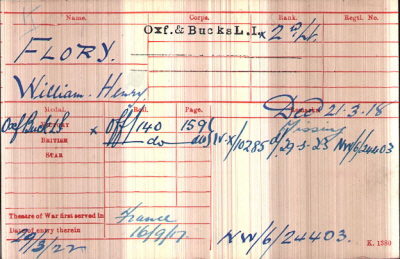 Name. Corps. Rank. Regtl. No.
Oxf. & Bucks L.I. x 2nd Lt.
FLORY.
William Henry
Medal. Roll. Page. Remarks
Died 21-3-18
VICTORY x Off/140 159
BRITISH do do
Missing
STAR
NW/6/24403
Theatre of War first served in France
Date of entry therein 16/9/17
29/3/22 NW/6/24403.
K. 1380